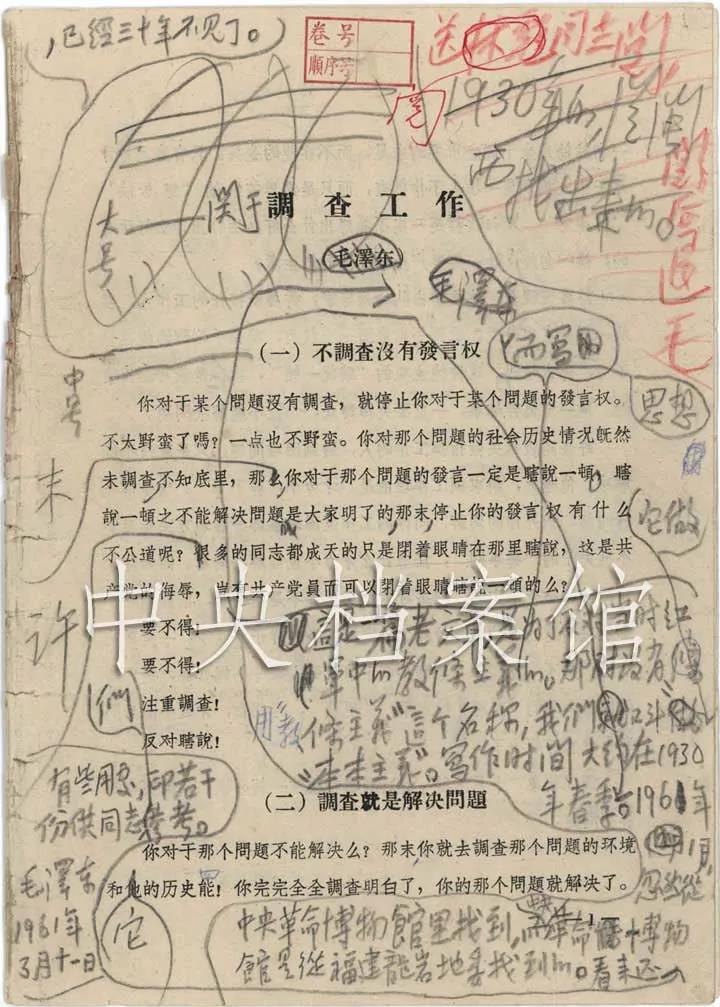 ，已經三十年不见了。
卷号
順序号
送林彪同志阅，
阅后退毛
1930年的，
找出来的。
大号
关于調查工作
毛澤东
毛澤东
（一）不調查沒有發言权
而写的
中号
你对于某个問題沒有調查，就停止你对于某个問題的發言权。
不太野蛮了嗎？一点也不野蛮。你对那个問題的社会历史情况旣然
未調查不知底里，那么你对于那个問題的發言一定是瞎說一頓，瞎
說一頓之不能解决問題是大家明了的，那末，停止你的發言权有什么
不公道呢？很多的同志都成天的只是閉着眼睛在那里瞎說，这是共
产党的侮辱，豈有共产党員而可以閉着眼睛瞎說一頓的么？
思想
它做
末
许
們
中央档案馆
要不得！
要不得！
注重調查！
反对瞎說！
这是一篇老文章，是为了反对当时红
軍中的教條主义思想而写的。那时没有
用“教條主义”這个名称，我們叫它做
“本本主义”。写作时間大约在1930
年春季。1961年
1月，
忽然從
（二）調查就是解决問題
有些用处，印若干
份供同志参考。
你对于那个問題不能解决么？那末，你就去調查那个問題的环境
和他的历史能！你完完全全調查明白了，你的那个問題就解决了。
毛澤东
1961年
3月十一日
它
中央革命博物館里找到，中央革命博物
館是從福建龍岩地委找到的。看来还
—1—